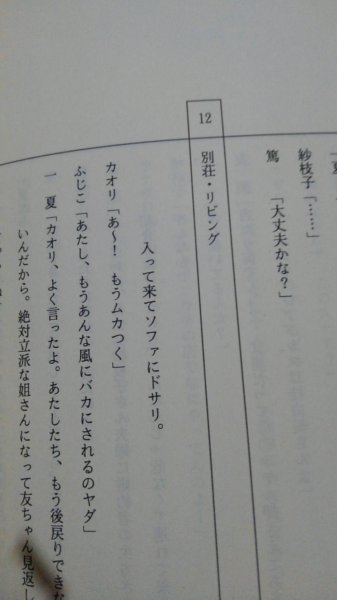 一夏
紗枝子「……」
篤　「大丈夫かな？」
12　別荘・リビング
入って来てソファにドサリ。
カオリ「あ～！　もうムカつく」
ふじこ「あたし、もうあんな風にバカにされるのヤダ」
一　夏「カオリ、よく言ったよ。あたしたち、もう後戻りできな
いんだから。絶対立派な姐さんになって友ちゃん見返し